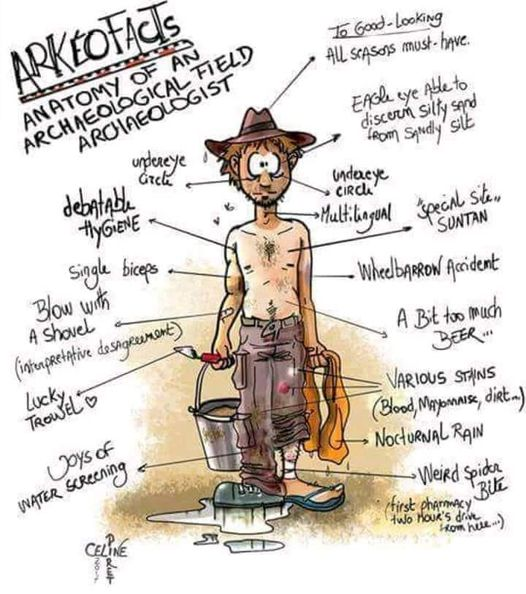 ARKÉOFACTS
ANATOMY OF AN
ARCHAEOLOGICAL FIELD
ARCHAEOLOGIST
To Good-Looking
All seasons must-have.
EAGLE eye Able to
discern silty sand
from SANdly Silt
undereye
circle
undereye
circle
Multilingual
"Special Site"
SUNTAN
debatable
HyGiENE
Single biceps
WheelbARROW Accident
Blow with
A Shovel
(interpretative desagreement)
A Bit too much
BEER...
Lucky
TROWEL ♡
VARIOUS STAiNS
(Blood, Mayonnaise, dirt...)
NOCTURNAL RAiN
JOYS OF
WATER SCREENiNG
Weird Spider
Bite
(first pharmacy
two hour's drive
from here...)
CELINE
PIRET